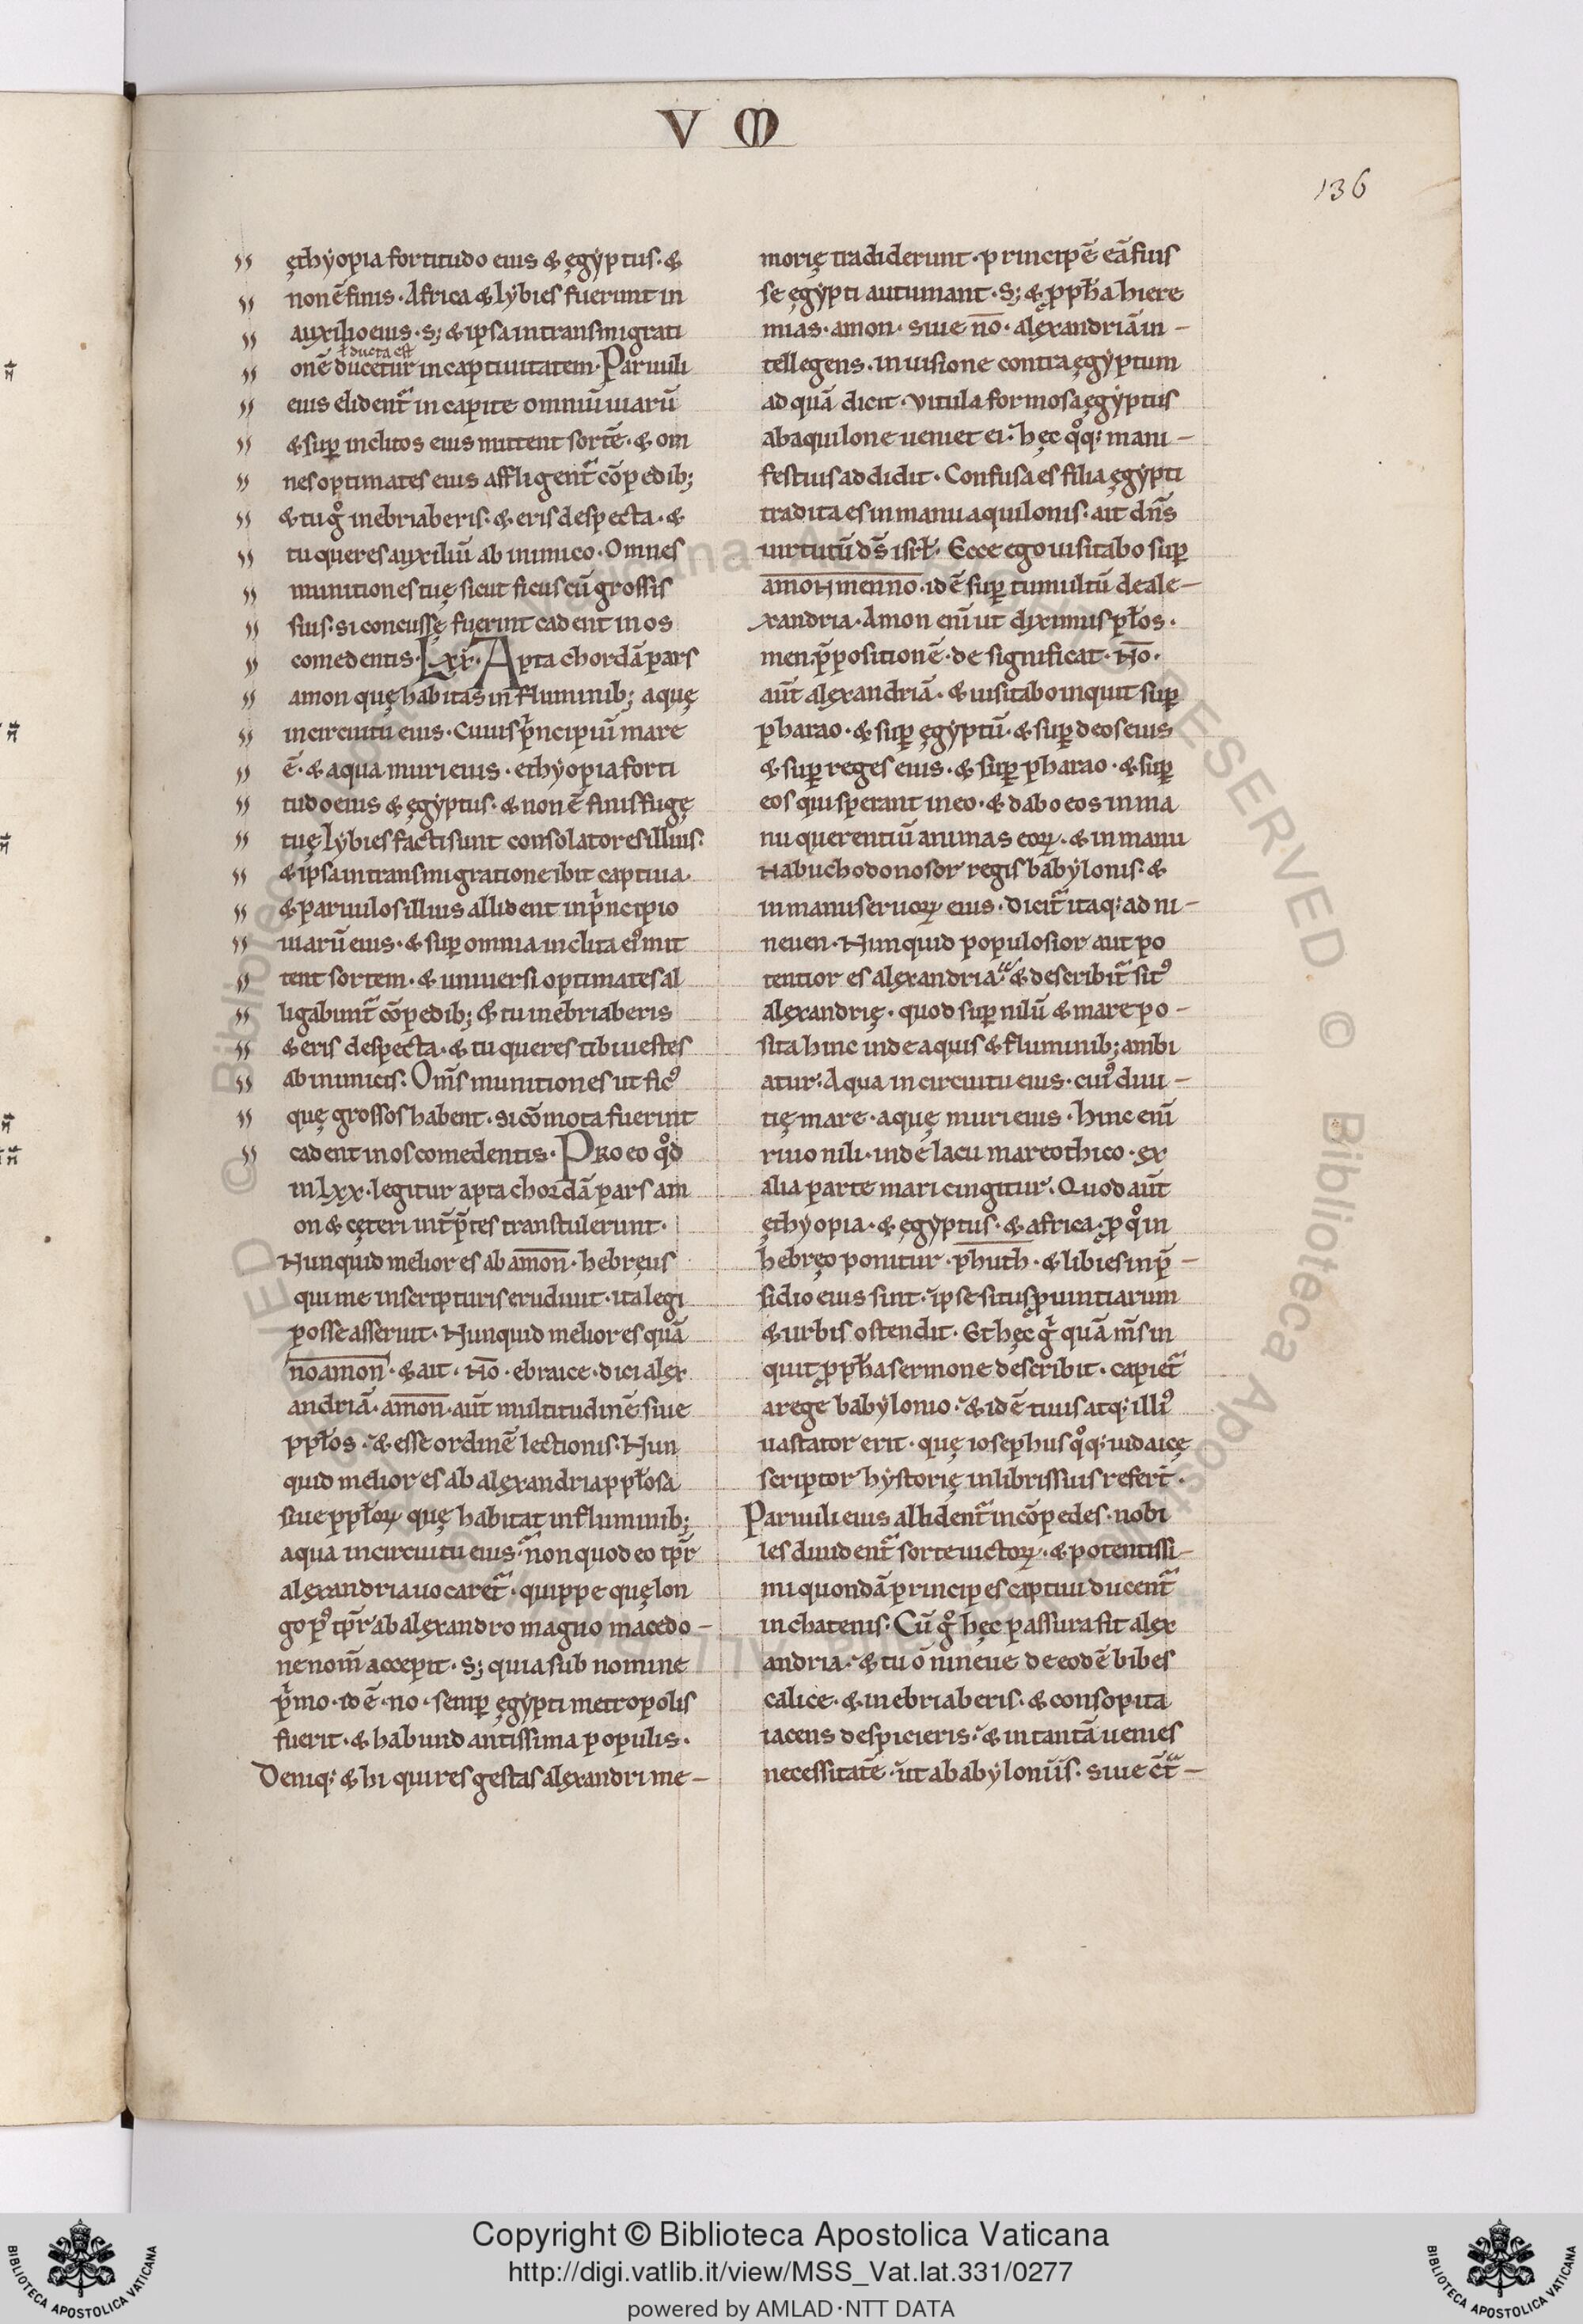 V M
136
ęthyopia fortitudo eius & ęgyptus· &
non ē finis· Africa & lybies fuerunt in
auxilio eius· s; & ipsa in transmigrati
ł ducta est
onē ducetur in captiuitatem· Paruuli
eius elident᷑ in capite omniū uiarū
& sup inclitos eius mittent sortē· & om
nes optimates eius affligent᷑ cōpedib;
& tu gͦ inebriaberis· & eris despecta· &
tu queres auxiliū ab inimico· Omnes
munitiones tuę sicut ficus cū grossis
suis· si concussę fuerint cadent in os
comedentis· Lxx· Apta chordā pars
amon quę habitas in fluminib; aquę
in circuitu eius· Cuius pͥncipiū mare
ē· & aqua muri eius· ethyopia forti
tudo eius & ęgyptus· & non ē finis fugę
tuę lybies facti sunt consolatores illius·
& ipsa in transmigratione ibit captiua·
& paruulos illius allident in pͥncipio
uiarū eius· & sup omnia inclita eiꝰ mit
tent sortem· & uniuersi optimates al
ligabunt᷑ cōpedib; & tu inebriaberis
& eris despecta· & tu queres tibi uestes
ab inimicis· Om̄s munitiones ut ficꝰ
quę grossos habent· si cōmota fuerint
cadent in os comedentis· Pro eo qͦd
in lxx· legitur apta chordā pars am
on & cęteri int̄p̄tes transtulerunt·
Nunquid melior es ab amon· hebręus
qui me in scripturis erudiuit· ita legi
posse asseruit· Nunquid melior es quā
noamon· & ait· No· ebraice· dici alex
andriā· amon· aūt multitudinē siue
ppłos· & esse ordinē lectionis· Nun
quid melior es ab alexandria ppłosa
siue ppłoꝝ quę habitat in fluminib;
aqua in circuitu eius· non quod eo tp̄r
alexandria uocaret᷑· quippe quę lon
go pꝰ tp̄r ab alexandro magno macedo-
ne nom̄ accepit· s; quia sub nomine
pͥmo· id ē· no· semp ęgypti metropolis
fuerit· & habundantissima populis·
Deniq; & hi qui res gestas alexandri me-
morię tradiderunt· principē eā fuis
se ęgypti autumant· S; & ppħa hiere
mias· amon· siue nō· alexandriā in-
tellegens· in uisione contra ęgyptum
ad quā dicit· Vitula formosa ęgyptus
ab aquilone ueniet ei· hęc qͦq; mani-
festius addidit· Confusa es filia ęgypti
tradita es in manu aquilonis· ait dn̄s
uirtutū ds̄ isrł· Ecce ego uisitabo sup
amon menno· id ē sup tumultū de ale-
xandria· Amon eni ut diximus płos·
men p̄positionē· de significat· No·
aūt alexandriā· & uisitabo inquit sup
pharao· & sup ęgyptū· & sup deos eius
& sup reges eius· & sup pharao· & sup
eos qui sperant in eo· & dabo eos in ma
nu querentiū animas eoꝝ· & in manu
Nabuchodonosor regis babylonis· &
in manu seruoꝝ eius· dicit᷑ itaq; ad ni-
neuen· Nunquid populosior aut po
tentior es alexandria· & describit᷑ sitꝰ
alexandrię· quod sup nilū & mare po-
sita hinc inde aquis & fluminib; ambi
atur· Aqua in circuitu eius· cuiꝰ diui-
tię mare· aquę muri eius· hinc eni
riuo nili· inde lacu mareothico· ex
alia parte mari cingitur· Quod aūt
ęthyopia· & ęgyptus· & africa· p qͦ in
hebręo ponitur· phuth· & libies in p̄-
sidio eius sint· ipse situs puintiarum
& urbis ostendit· Et hęc gͥ quā m̄s in
quit ppħa sermone describit· capiet᷑
a rege babylonio· & id ē ciuis atq; illiꝰ
uastator erit· quę iosephus qͦq; iudaicę
scriptor hystorię in libris suis refert·
Paruuli eius allident᷑ in cōpedes· nobi
les diuident᷑ sorte uictoꝝ· & potentissi-
mi quondā principes captiui ducent᷑
in chatenis· Cū gͦ hęc passura sit alex
andria· & tu o nineue de eodē bibes
calice· & inebriaberis· & consopita
iacens despicieris· & in tantā uenies
necessitatē· ut a babyloniis· siue c̄t᷑-
Copyright © Biblioteca Apostolica Vaticana
http://digi.vatlib.it/view/MSS_Vat.lat.331/0277
powered by AMLAD·NTT DATA
BIBLIOTECA APOSTOLICA VATICANA
BIBLIOTECA APOSTOLICA VATICANA